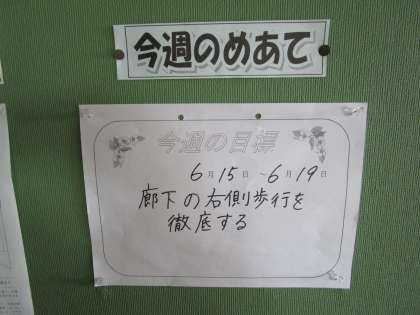 今週のめあて
今週の目標
6月15日～6月19日
廊下の右側歩行を
徹底する